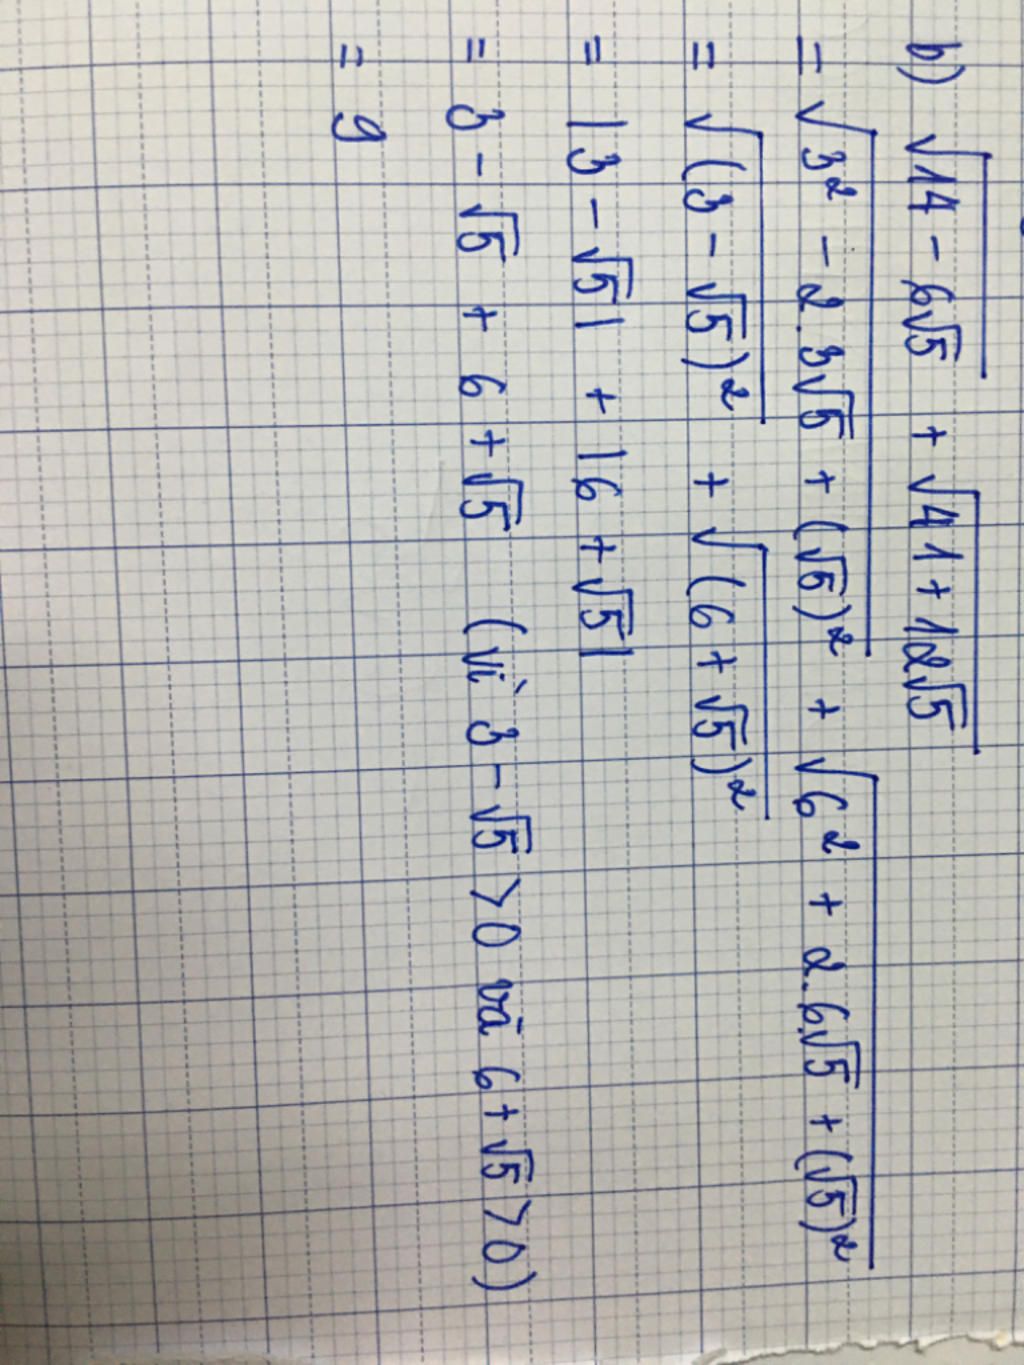 b) √(14 - 6√5) + √(41 + 12√5)
= √(3² - 2.3√5 + (√5)²) + √(6² + 2.6√5 + (√5)²)
= √((3 - √5)²) + √((6 + √5)²)
= |3 - √5| + |6 + √5|
= 3 - √5 + 6 + √5 (vì 3 - √5 > 0 và 6 + √5 > 0)
= 9